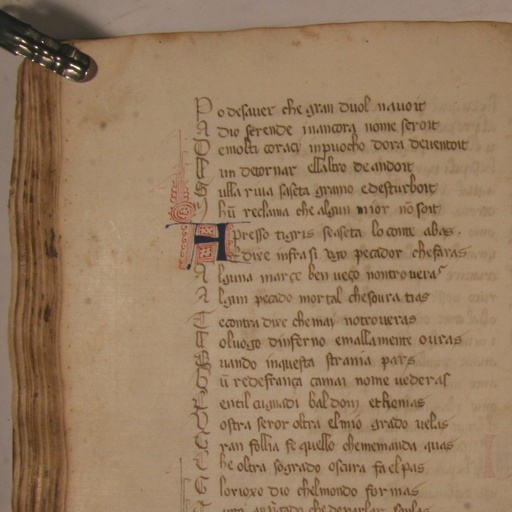 P o desauer che gran duol nauoit
A dio serende inancora nome seroit
D emolti coraci inpuocho dora deuentoit
L un detornar ellaltro de andoit
S ulla riua saseta gramo edesturboit
hū reclama che algun mior nō soit
A presso tigris seaseta lo conte abas.
E dixe infra si ugo pecador chefaras
A lguna março ben ueço nontroueras
A lgun pecado mortal che soura tias
T econtradixe chemai notroueras
L oluogo dinferno emallamente ouras
Q uando inquesta strania pars
H ū redefrança camai nome uederas
C entil cugnadi baldoin etthomas
V ostra seror oltra elmio grado uelas
G ran follia fe quello chememanda quas
C he oltra sogrado oscura fa elpas
G lorioxo dio chelmondo formas